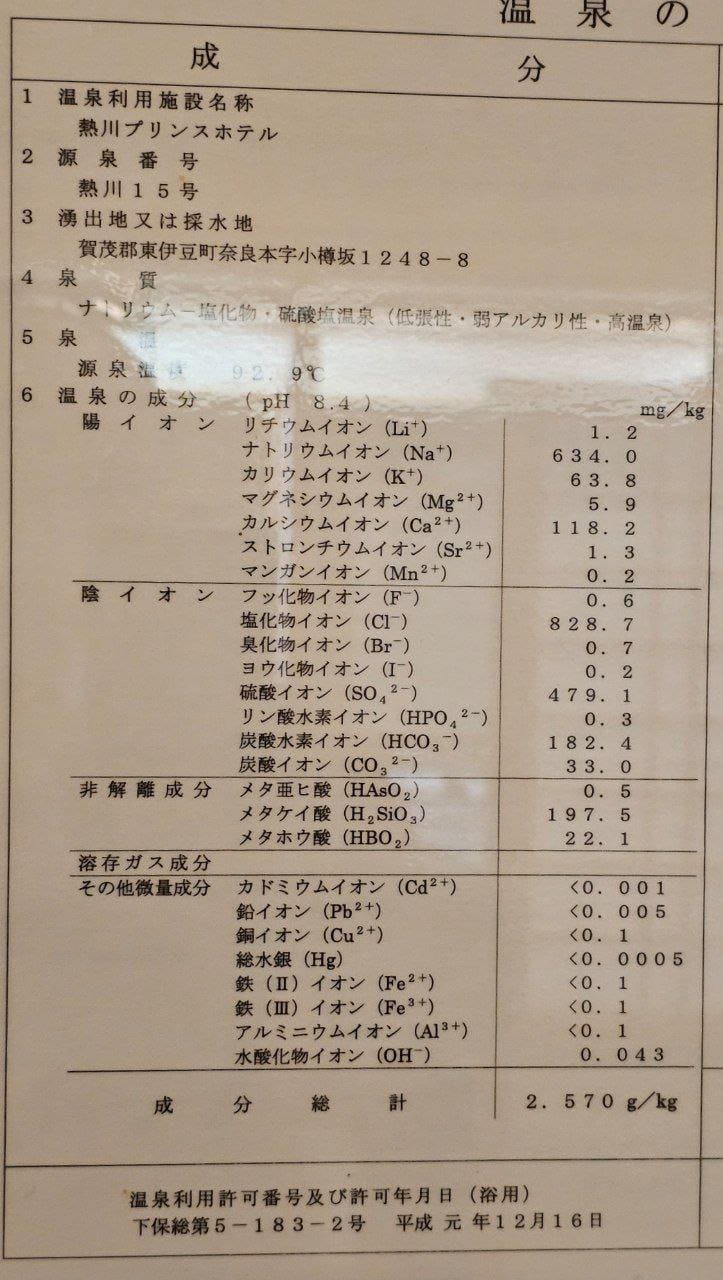 温泉の
成分
1 温泉利用施設名称
熱川プリンスホテル
2 源泉番号
熱川15号
3 湧出地又は採水地
賀茂郡東伊豆町奈良本字小樽坂1248-8
4 泉質
ナトリウム-塩化物・硫酸塩温泉(低張性・弱アルカリ性・高温泉)
5 泉温
源泉温度 92.9℃
6 温泉の成分 (pH 8.4) mg/kg
陽イオン リチウムイオン(Li⁺) 1.2
ナトリウムイオン(Na⁺) 634.0
カリウムイオン(K⁺) 63.8
マグネシウムイオン(Mg²⁺) 5.9
カルシウムイオン(Ca²⁺) 118.2
ストロンチウムイオン(Sr²⁺) 1.3
マンガンイオン(Mn²⁺) 0.2
陰イオン フッ化物イオン(F⁻) 0.6
塩化物イオン(Cl⁻) 828.7
臭化物イオン(Br⁻) 0.7
ヨウ化物イオン(I⁻) 0.2
硫酸イオン(SO₄²⁻) 479.1
リン酸水素イオン(HPO₄²⁻) 0.3
炭酸水素イオン(HCO₃⁻) 182.4
炭酸イオン(CO₃²⁻) 33.0
非解離成分 メタ亜ヒ酸(HAsO₂) 0.5
メタケイ酸(H₂SiO₃) 197.5
メタホウ酸(HBO₂) 22.1
溶存ガス成分
その他微量成分 カドミウムイオン(Cd²⁺) <0.001
鉛イオン(Pb²⁺) <0.005
銅イオン(Cu²⁺) <0.1
総水銀(Hg) <0.0005
鉄(II)イオン(Fe²⁺) <0.1
鉄(III)イオン(Fe³⁺) <0.1
アルミニウムイオン(Al³⁺) <0.1
水酸化物イオン(OH⁻) 0.043
成分総計 2.570 g/kg
温泉利用許可番号及び許可年月日(浴用)
下保総第5-183-2号 平成元年12月16日